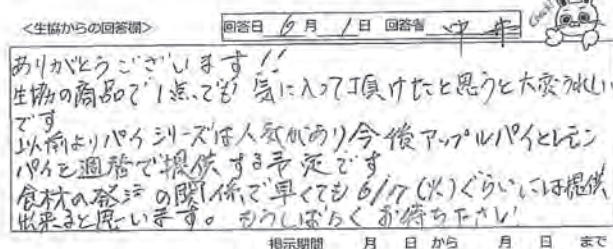 <生協からの回答欄> 回答日 6月 1日 回答者 中井
Check!
ありがとうございます!!
生協の商品で1点でも気に入って頂けたと思うと大変うれしい
です
以前よりパイシリーズは人気があり今後アップルパイとレモン
パイを週替で提供する予定です
食材の発注の関係で早くても6/17(火)ぐらいには提供
出来ると思います。もうしばらくお待ち下さい
掲示期間 月 日 から 月 日 まで